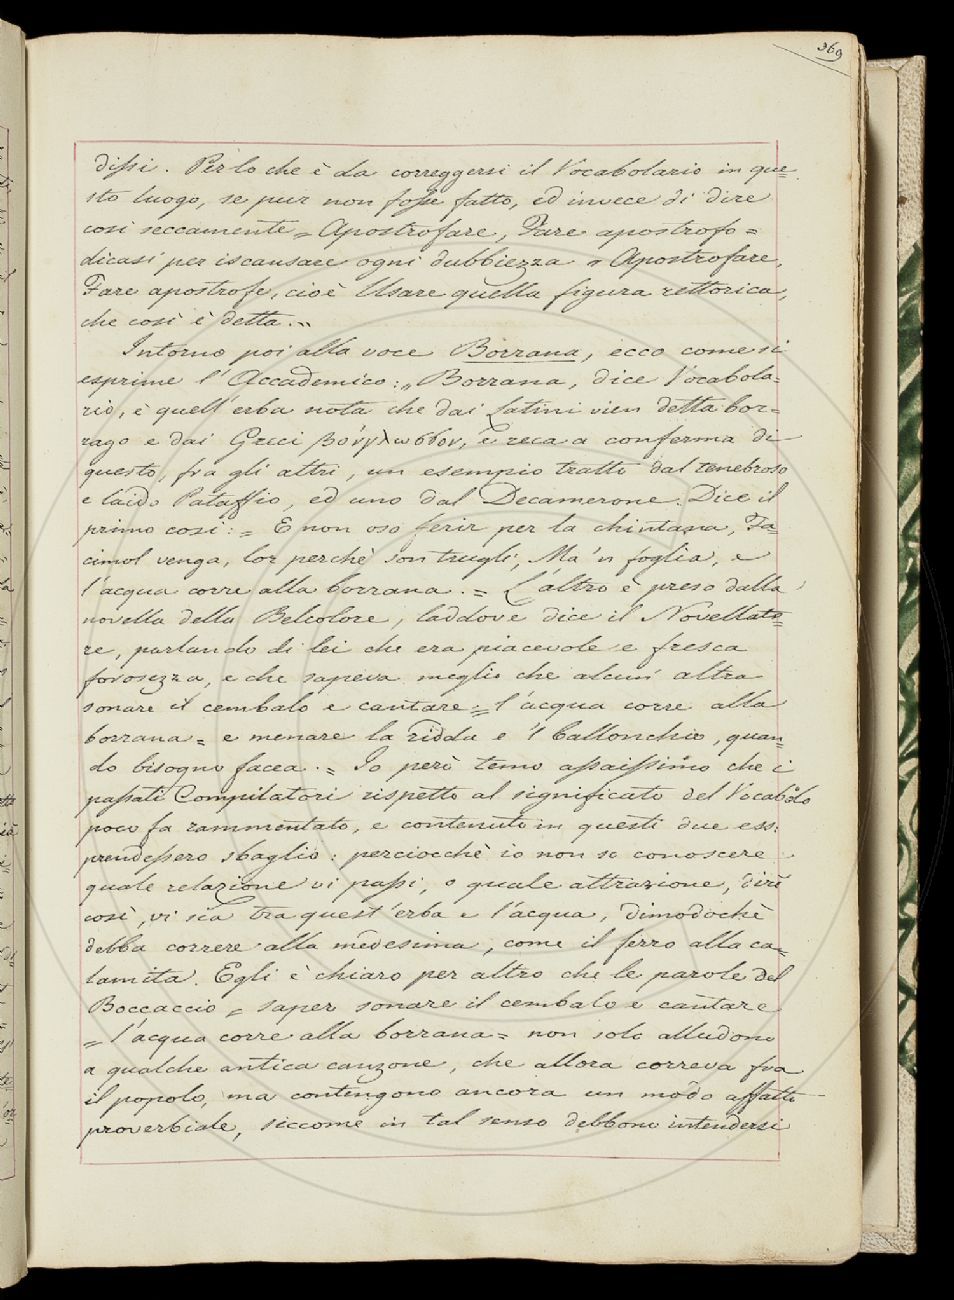 369
dissi. Perlo che è da correggersi il Vocabolario in que=
sto luogo, se pur non fosse fatto, ed invece di dire
così seccamente = Apostrofare, Fare apostrofo =
dicasi per iscansare ogni dubbiezza " Apostrofare,
Fare apostrofe, cioè Usare quella figura rettorica,
che così è detta. „
Intorno poi alla voce Borrana, ecco come si
esprime l'Accademico: „ Borrana, dice Vocabola=
rio, è quell'erba nota che dai Latini vien detta bor=
rago e dai Greci βούγλωσσον, e reca a conferma di
questo, fra gli altri, un esempio tratto dal tenebroso
e laido Pataffio, ed uno dal Decamerone. Dice il
primo così: = E non oso ferir per la chintana, Fa=
cimol venga, lor perchè son trugli, Ma 'n foglia, e
l'acqua corre alla borrana. = L'altro è preso dalla
novella della Belcolore, laddove dice il Novellato=
re, parlando di lei che era piacevole e fresca
foresozza, e che sapeva meglio che alcun' altra
sonare il cembalo e cantare = l'acqua corre alla
borrana = e menare la ridda e 'l ballonchio, quan=
do bisogno facea. = Io però temo assaissimo che i
passati Compilatori rispetto al significato del Vocabolo
poco fa rammentato, e contenuto in questi due ess:
prendessero sbaglio: perciocchè io non so conoscere
quale relazione vi passi, o quale attrazione, dirò
così, vi sia tra quest'erba e l'acqua, dimodochè
debba correre alla medesima, come il ferro alla ca=
lamita. Egli è chiaro per altro che le parole del
Boccaccio = saper sonare il cembalo e cantare
= l'acqua corre alla borrana = non solo alludono
a qualche antica canzone, che allora correva fra
il popolo, ma contengono ancora un modo affatto
proverbiale, siccome in tal senso debbono intendersi